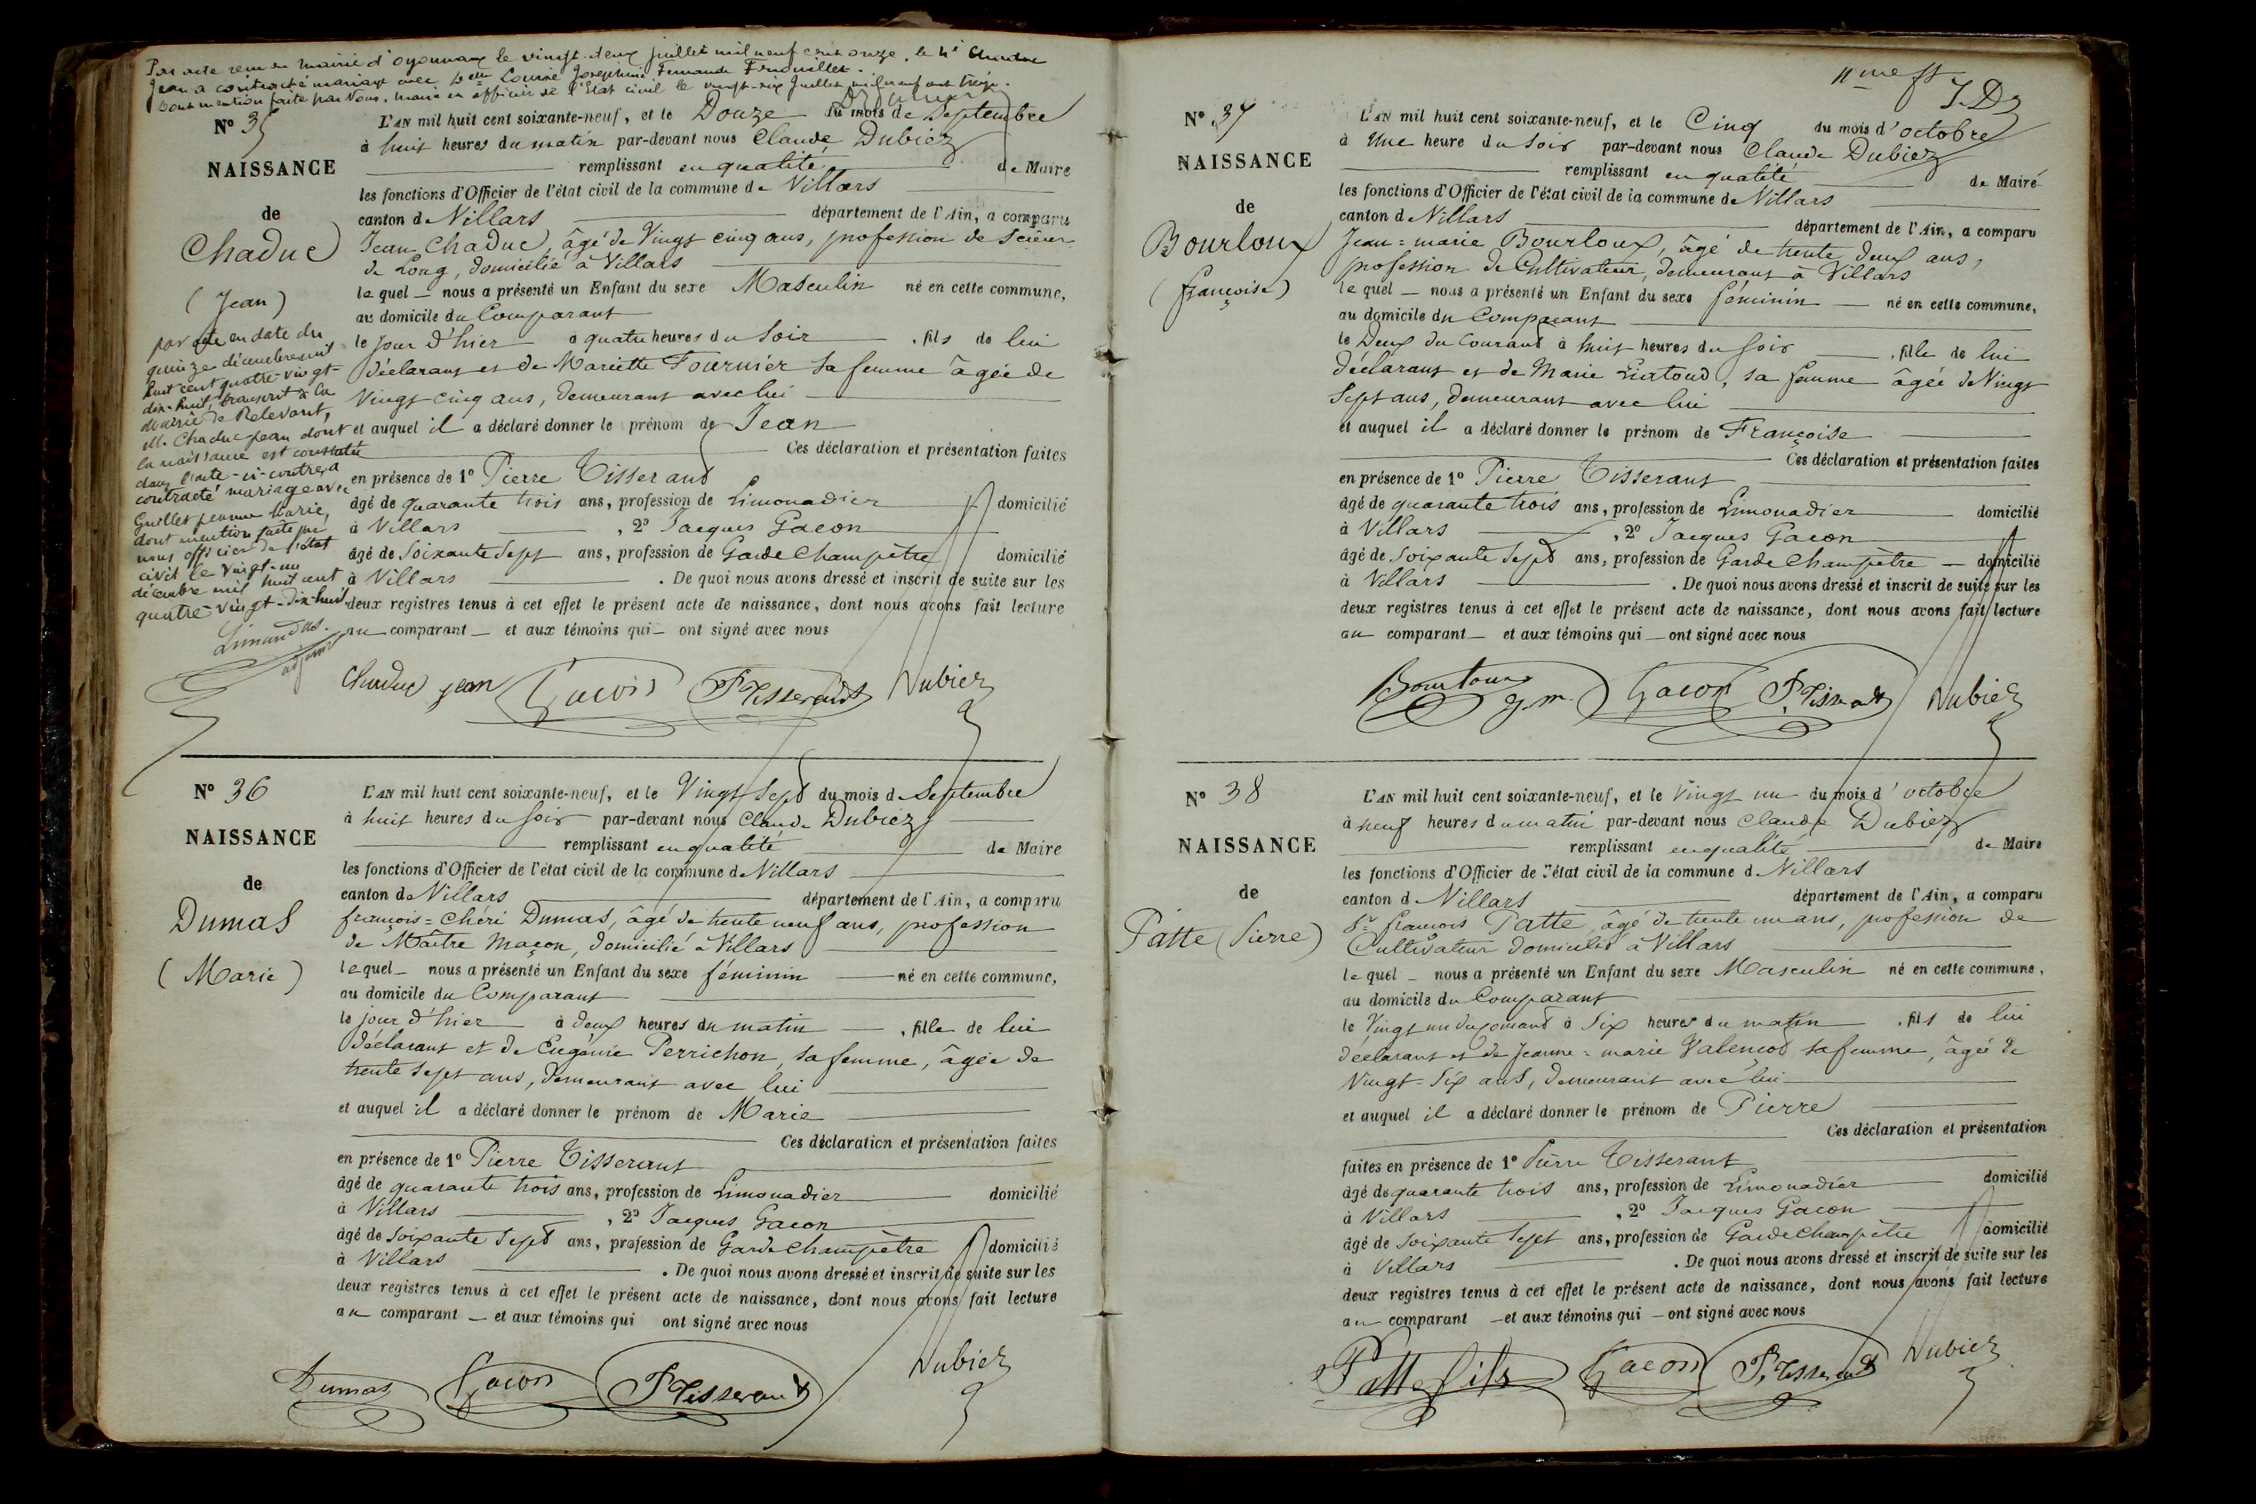 Par acte reçu en mairie d'oyonnax le vingt-deux juillet mil neuf cent onze, le Sr Chaduc
Jean a contracté mariage avec Delle Louise Joséphine Fernande
dont mention faite par Nous, maire en officier de l'Etat civil le vingt-six juillet mil neuf cent treize.
N° 35
NAISSANCE
de
Chaduc
(Jean)
par acte en date du
quinze décembre mil
huit cent quatre-vingt-
dix-huit, transcrit à la
Mairie de Relevant,
M. Chaduc Jean dont
la naissance est constatée
dans l'acte ci-contre a
contracté mariage avec
Guillet Jeanne Marie,
dont mention faite par
nous officier de l'état
civil le vingt-un
décembre mil huit cent
quatre-vingt-dix-huit.
adjoint
L'AN mil huit cent soixante-neuf, et le Douze du mois de Septembre
à huit heures du matin par-devant nous Claude Dubiez
remplissant en qualité de Maire
les fonctions d'Officier de l'état civil de la commune de Villars
canton de Villars département de l'Ain, a comparu
Jean Chaduc, âgé de Vingt cinq ans, profession de Scieur
de Long, domicilié à Villars
lequel nous a présenté un Enfant du sexe Masculin né en cette commune,
au domicile du Comparant
le jour d'hier à quatre heures du Soir , fils de lui
déclarant et de Mariette Fournier sa femme âgée de
Vingt cinq ans, demeurant avec lui
et auquel il a déclaré donner le prénom de Jean
Ces déclaration et présentation faites
en présence de 1° Pierre Tisserand
âgé de quarante trois ans, profession de Limonadier domicilié
à Villars , 2° Jacques Gacon
âgé de Soixante Sept ans, profession de Garde Champêtre domicilié
à Villars . De quoi nous avons dressé et inscrit de suite sur les
deux registres tenus à cet effet le présent acte de naissance, dont nous avons fait lecture
au comparant et aux témoins qui ont signé avec nous
Chaduc jean Gacon P Tisserand Dubiez
N° 36
NAISSANCE
de
Dumas
(Marie)
L'AN mil huit cent soixante-neuf, et le Vingt Sept du mois d Septembre
à huit heures du Soir par-devant nous Claude Dubiez
remplissant en qualité de Maire
les fonctions d'Officier de l'état civil de la commune de Villars
canton de Villars département de l'Ain, a comparu
françois=Chéri Dumas, âgé de trente neuf ans, profession
de Maître Maçon, domicilié à Villars
lequel nous a présenté un Enfant du sexe féminin né en cette commune,
au domicile du Comparant
le jour d'hier à deux heures du matin , fille de lui
déclarant et de Eugénie Perrichon, sa femme, âgée de
trente Sept ans, demeurant avec lui
et auquel il a déclaré donner le prénom de Marie
Ces déclaration et présentation faites
en présence de 1° Pierre Tisserant
âgé de quarante trois ans, profession de Limonadier domicilié
à Villars , 2° Jacques Gacon
âgé de Soixante Sept ans, profession de Garde Champêtre domicilié
à Villars . De quoi nous avons dressé et inscrit de suite sur les
deux registres tenus à cet effet le présent acte de naissance, dont nous avons fait lecture
au comparant et aux témoins qui ont signé avec nous
Dumas Gacon P Tisserand Dubiez
N° 37
NAISSANCE
de
Bourloux
(françoise)
L'AN mil huit cent soixante-neuf, et le Cinq du mois d'octobre
à Une heure du Soir par-devant nous Claude Dubiez
remplissant en qualité de Maire
les fonctions d'Officier de l'état civil de la commune de Villars
canton de Villars département de l'Ain, a comparu
Jean=marie Bourloux, âgé de trente deux ans,
profession de Cultivateur, demeurant à Villars
lequel nous a présenté un Enfant du sexe féminin né en cette commune,
au domicile du Comparant
le Deux du Courant à huit heures du Soir , fille de lui
déclarant et de Marie Liatoud, sa femme âgée de Vingt
Sept ans, demeurant avec lui
et auquel il a déclaré donner le prénom de Françoise
Ces déclaration et présentation faites
en présence de 1° Pierre Tisserant
âgé de quarante trois ans, profession de Limonadier domicilié
à Villars , 2° Jacques Gacon
âgé de Soixante Sept ans, profession de Garde Champêtre domicilié
à Villars . De quoi nous avons dressé et inscrit de suite sur les
deux registres tenus à cet effet le présent acte de naissance, dont nous avons fait lecture
au comparant et aux témoins qui ont signé avec nous
Gacon P. Tisserant Dubiez
N° 38
NAISSANCE
de
Patte (Pierre)
L'AN mil huit cent soixante-neuf, et le Vingt un du mois d'octobre
à neuf heures du matin par-devant nous Claude Dubiez
remplissant en qualité de Maire
les fonctions d'Officier de l'état civil de la commune d Villars
canton d Villars département de l'Ain, a comparu
Sr françois Patte, âgé de trente un ans, profession de
Cultivateur domicilié à Villars
lequel nous a présenté un Enfant du sexe Masculin né en cette commune,
au domicile du Comparant
le Vingt un du courant à Six heures du matin , fils de lui
déclarant et de Jeanne=marie Valençot sa femme, âgée de
Vingt=Six ans, demeurant avec lui
et auquel il a déclaré donner le prénom de Pierre
Ces déclaration et présentation
faites en présence de 1° Pierre Tisserant
âgé de quarante trois ans, profession de Limonadier domicilié
à Villars , 2° Jacques Gacon
âgé de Soixante Sept ans, profession de Garde Champêtre domicilié
à Villars . De quoi nous avons dressé et inscrit de suite sur les
deux registres tenus à cet effet le présent acte de naissance, dont nous avons fait lecture
au comparant et aux témoins qui ont signé avec nous
Patte fils Gacon P. Tisserand Dubiez